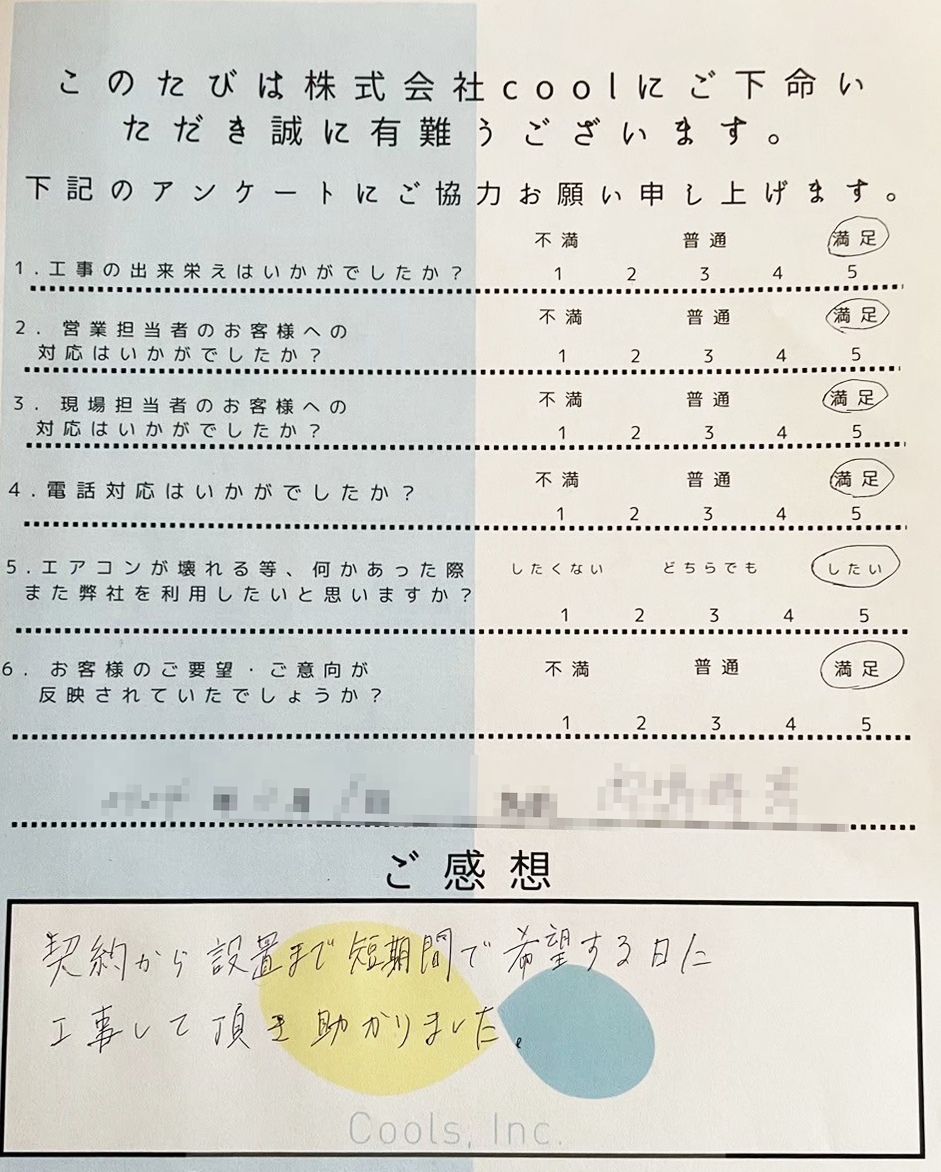 このたびは株式会社coolにご下命い
ただき誠に有難うございます。
下記のアンケートにご協力お願い申し上げます。
不満 普通 満足
1.工事の出来栄えはいかがでしたか? 1 2 3 4 5
不満 普通 満足
2. 営業担当者のお客様への
対応はいかがでしたか? 1 2 3 4 5
不満 普通 満足
3. 現場担当者のお客様への
対応はいかがでしたか? 1 2 3 4 5
不満 普通 満足
4.電話対応はいかがでしたか?
1 2 3 4 5
5.エアコンが壊れる等、何かあった際 したくない どちらでも したい
また弊社を利用したいと思いますか?
1 2 3 4 5
6. お客様のご要望・ご意向が 不満 普通 満足
反映されていたでしょうか?
1 2 3 4 5
ご感想
契約から設置まで短期間で希望する日に
工事して頂き助かりました。
Cools, Inc.